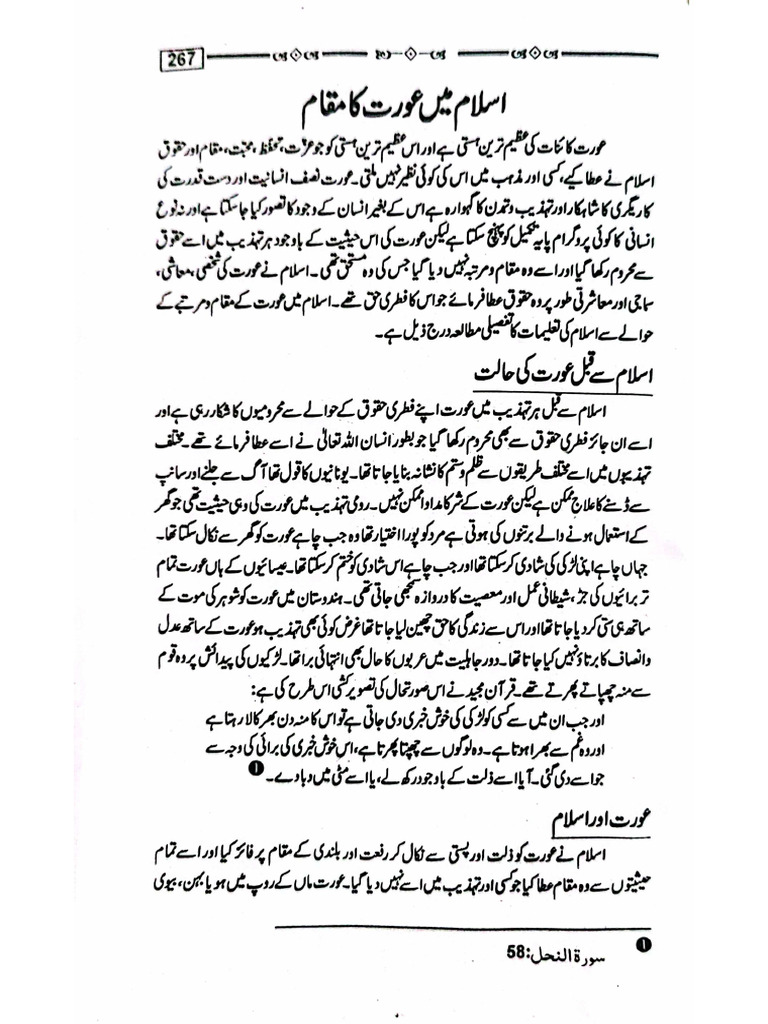 267
اسلام میں عورت کا مقام
عورت کائنات کی عظیم ترین ہستی ہے اور اس عظیم ترین ہستی کو جو عزت، تحفظ، محبت، مقام اور حقوق
اسلام نے عطا کیے، کسی اور مذہب میں اس کی کوئی نظیر نہیں ملتی۔ عورت نصف انسانیت اور دست قدرت کی
کاریگری کا شاہکار اور تہذیب و تمدن کا گہوارہ ہے اس کے بغیر انسان کے وجود کا تصور کیا جا سکتا ہے اور نہ نوع
انسانی کا کوئی پروگرام پایہ تکمیل کو پہنچ سکتا ہے لیکن عورت کی اس حیثیت کے باوجود ہر تہذیب میں اسے حقوق
سے محروم رکھا گیا اور اسے وہ مقام و مرتبہ نہیں دیا گیا جس کی وہ مستحق تھی۔ اسلام نے عورت کی شخصی، معاشی،
سماجی اور معاشرتی طور پر وہ حقوق عطا فرمائے جو اس کا فطری حق تھے۔ اسلام میں عورت کے مقام و مرتبے کے
حوالے سے اسلام کی تعلیمات کا تفصیلی مطالعہ درج ذیل ہے۔
اسلام سے قبل عورت کی حالت
اسلام سے قبل ہر تہذیب میں عورت اپنے فطری حقوق کے حوالے سے محرومیوں کا شکار رہی ہے اور
اسے ان جائز فطری حقوق سے بھی محروم رکھا گیا جو بطور انسان اللہ تعالیٰ نے اسے عطا فرمائے تھے۔ مختلف
تہذیبوں میں اسے مختلف طریقوں سے ظلم و ستم کا نشانہ بنایا جاتا تھا۔ یونانیوں کا قول تھا آگ سے جلنے اور سانپ
سے ڈسنے کا علاج ممکن ہے لیکن عورت کے شر کا مداوا ممکن نہیں۔ رومی تہذیب میں عورت کی وہی حیثیت تھی جو گھر
کے استعمال ہونے والے برتنوں کی ہوتی ہے مرد کو پورا اختیار تھا وہ جب چاہے عورت کو گھر سے نکال سکتا تھا۔
جہاں چاہے اپنی لڑکی کی شادی کر سکتا تھا اور جب چاہے اس شادی کو ختم کر سکتا تھا۔ عیسائیوں کے ہاں عورت تمام
تر برائیوں کی جڑ، شیطانی عمل اور معصیت کا دروازہ سمجھی جاتی تھی۔ ہندوستان میں عورت کو شوہر کی موت کے
ساتھ ہی ستی کر دیا جاتا تھا اور اس سے زندگی کا حق چھین لیا جاتا تھا غرض کوئی بھی تہذیب ہو عورت کے ساتھ عدل
و انصاف کا برتاؤ نہیں کیا جاتا تھا۔ دور جاہلیت میں عربوں کا حال بھی انتہائی برا تھا۔ لڑکیوں کی پیدائش پر وہ قوم
سے منہ چھپاتے پھرتے تھے۔ قرآن مجید نے اس صورتحال کی تصویر کشی اس طرح کی ہے:
اور جب ان میں سے کسی کو لڑکی کی خوش خبری دی جاتی ہے تو اس کا منہ دن بھر کالا رہتا ہے
اور وہ غم سے بھرا ہوتا ہے۔ وہ لوگوں سے چھپتا پھرتا ہے، اس خوش خبری کی برائی کی وجہ سے
جو اسے دی گئی۔ آیا اسے ذلت کے باوجود رکھ لے، یا اسے مٹی میں دبا دے۔ ❶
عورت اور اسلام
اسلام نے عورت کو ذلت اور پستی سے نکال کر رفعت اور بلندی کے مقام پر فائز کیا اور اسے تمام
حیثیتوں سے وہ مقام عطا کیا جو کسی اور تہذیب میں اسے نہیں دیا گیا۔ عورت ماں کے روپ میں ہو یا بہن، بیوی
❶ سورة النحل: 58